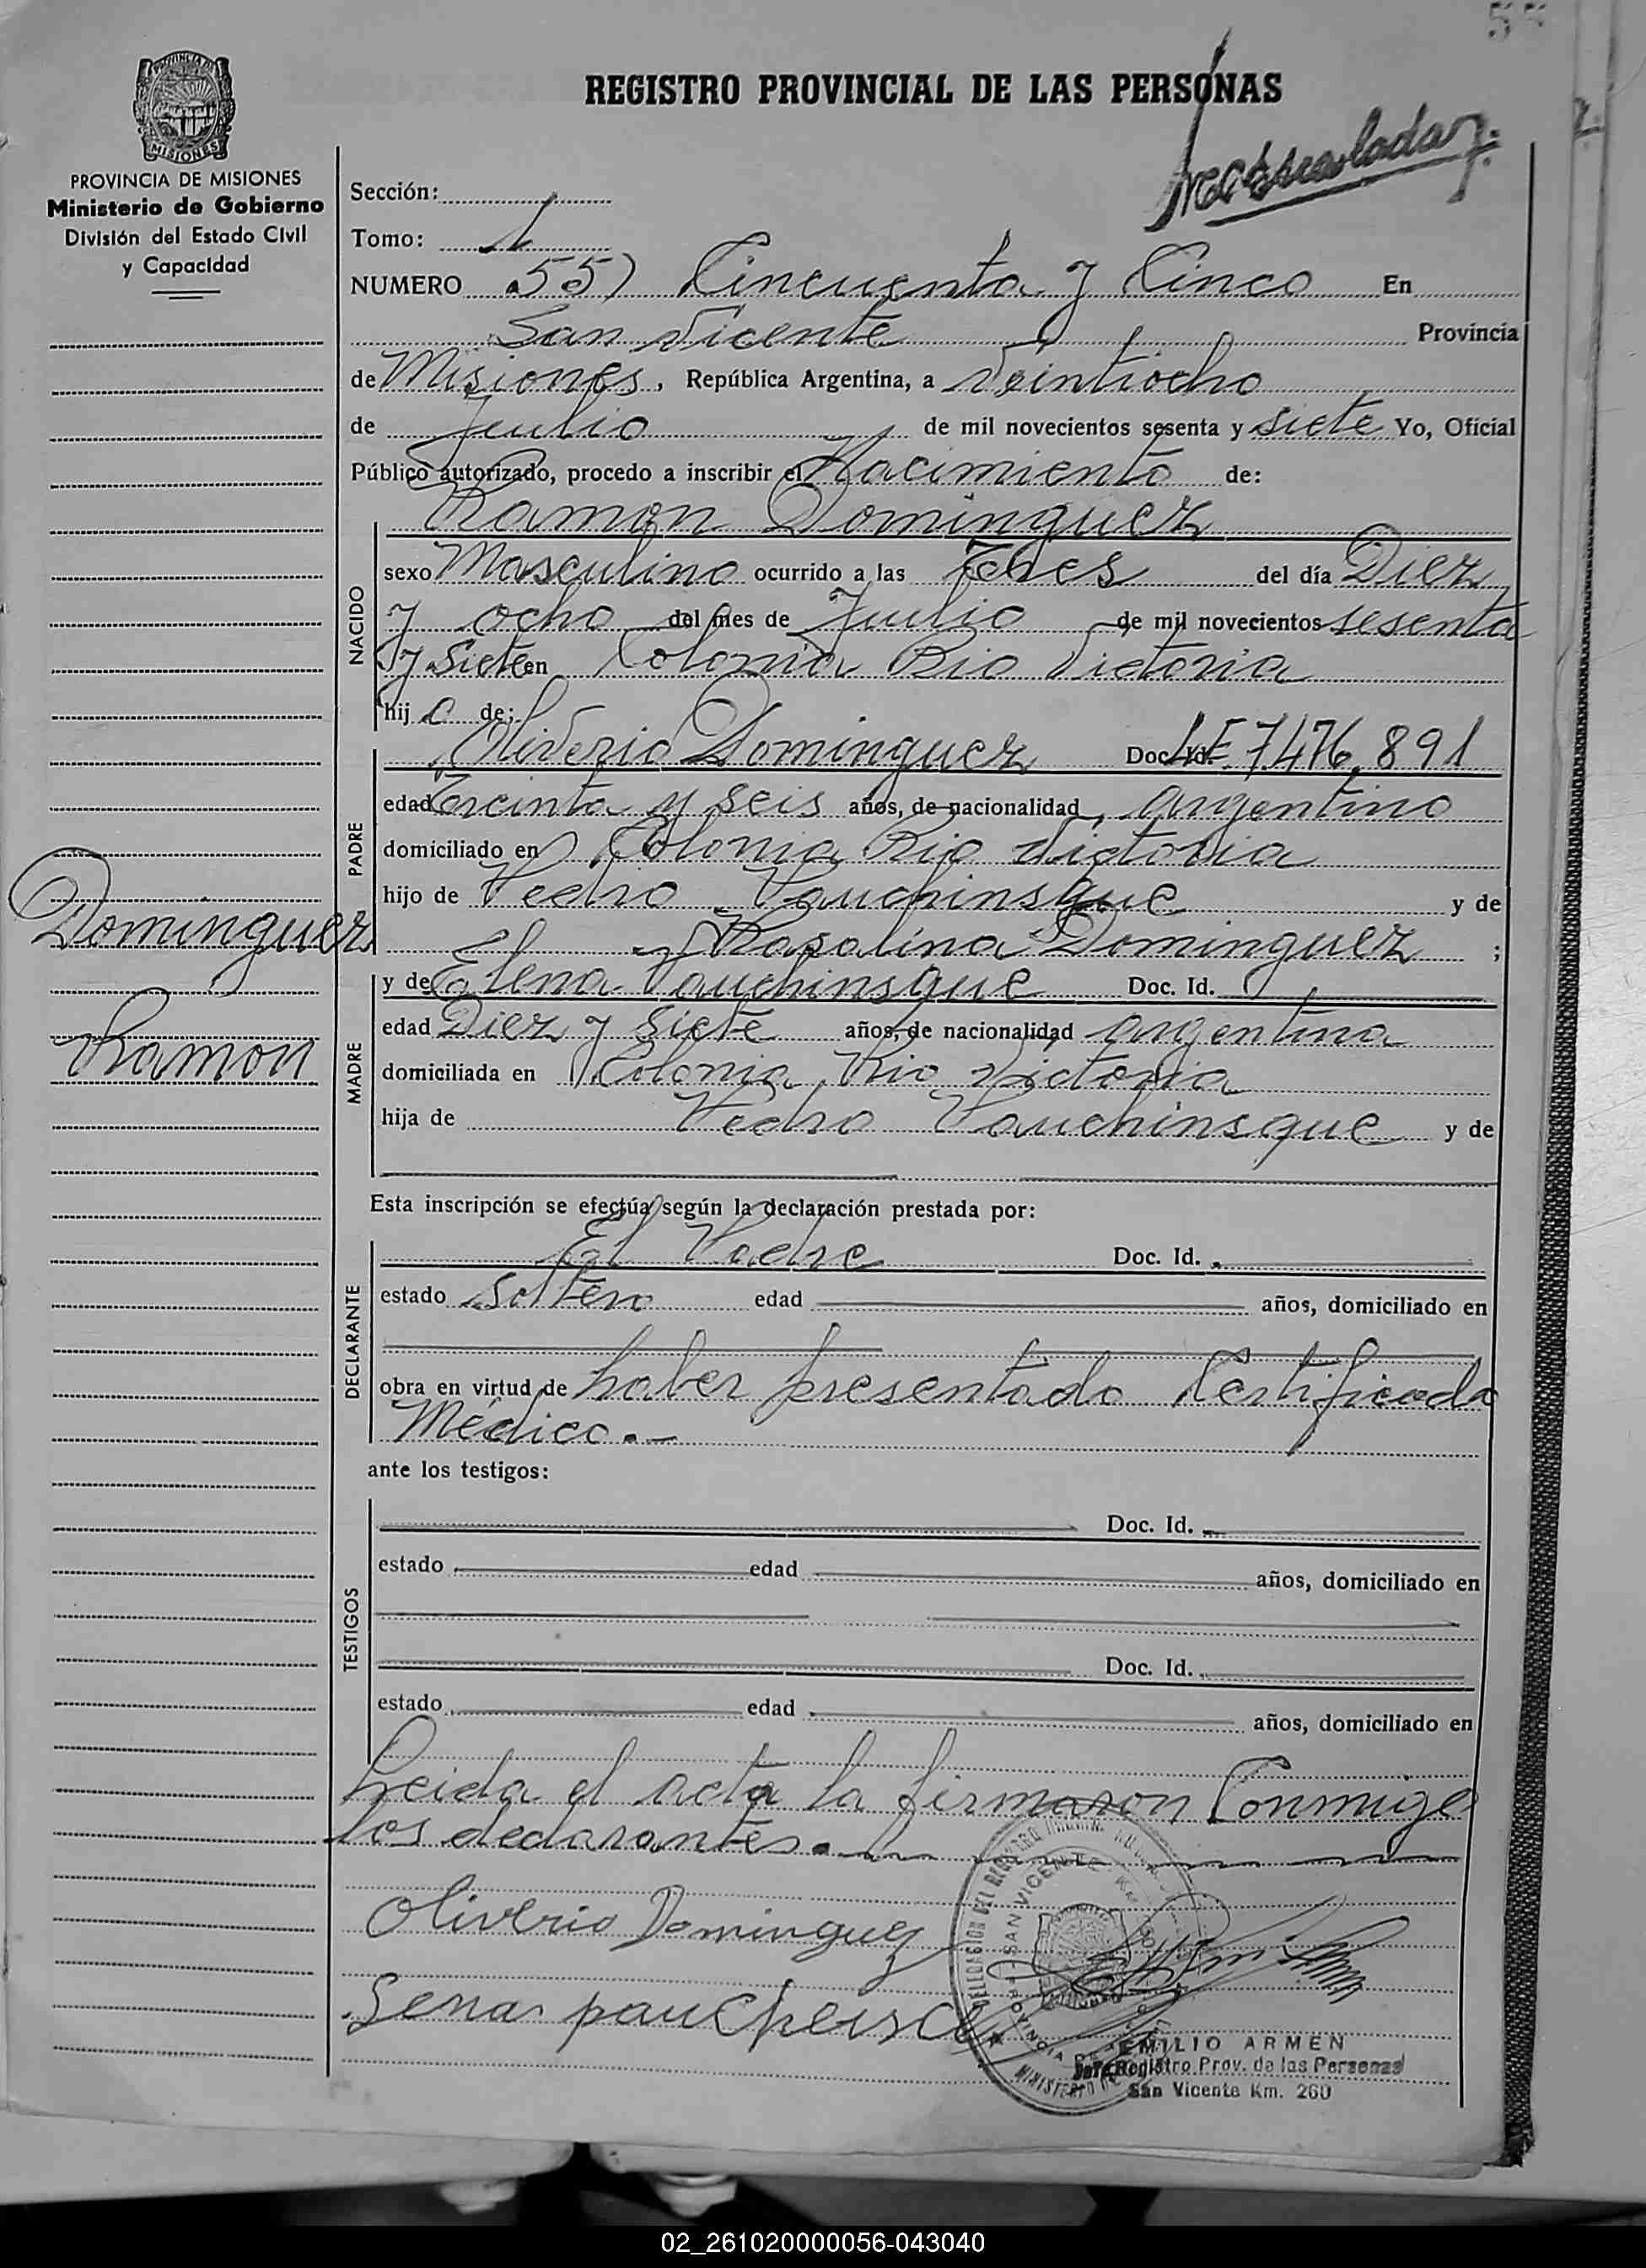 55
REGISTRO PROVINCIAL DE LAS PERSONAS
PROVINCIA DE MISIONES
MISIONES
PROVINCIA DE MISIONES
Ministerio de Gobierno
División del Estado Civil
y Capacidad
Sección:
Tomo: 1
NUMERO 55) Cincuenta y Cinco En
San Vicente Provincia
de Misiones, República Argentina, a Veintiocho
de Julio de mil novecientos sesenta y siete Yo, Oficial
Público autorizado, procedo a inscribir el Nacimiento de:
Ramon Dominguez
NACIDO
sexo Masculino ocurrido a las del día Diez
y ocho del mes de Julio de mil novecientos sesenta
y Siete en Colonia Rio Victoria
hij o de:
PADRE
Oliverio Dominguez Doc. Id. LE 7.476.891
edad Treinta y seis años, de nacionalidad argentino
domiciliado en Colonia Rio Victoria
hijo de Pedro Pauchinsque y de
El Rosalina Dominguez ;
Dominguez
Ramon
MADRE
y de Elena Pauchinsque Doc. Id.
edad Diez y Siete años, de nacionalidad argentina
domiciliada en Colonia Rio Victoria
hija de Pedro Pauchinsque y de
Esta inscripción se efectúa según la declaración prestada por:
DECLARANTE
El Padre Doc. Id.
estado Soltero edad años, domiciliado en
obra en virtud de haber presentado Certificado
Médico.-
ante los testigos:
TESTIGOS
Doc. Id.
estado edad años, domiciliado en
Doc. Id.
estado edad años, domiciliado en
Leida el acta la firmaron Conmigo
los declarantes.
Oliverio Dominguez
SAN VICENTE
EMILIO ARMEN
Jefe Registro Prov. de las Personas
San Vicente Km. 260
02_261020000056-043040